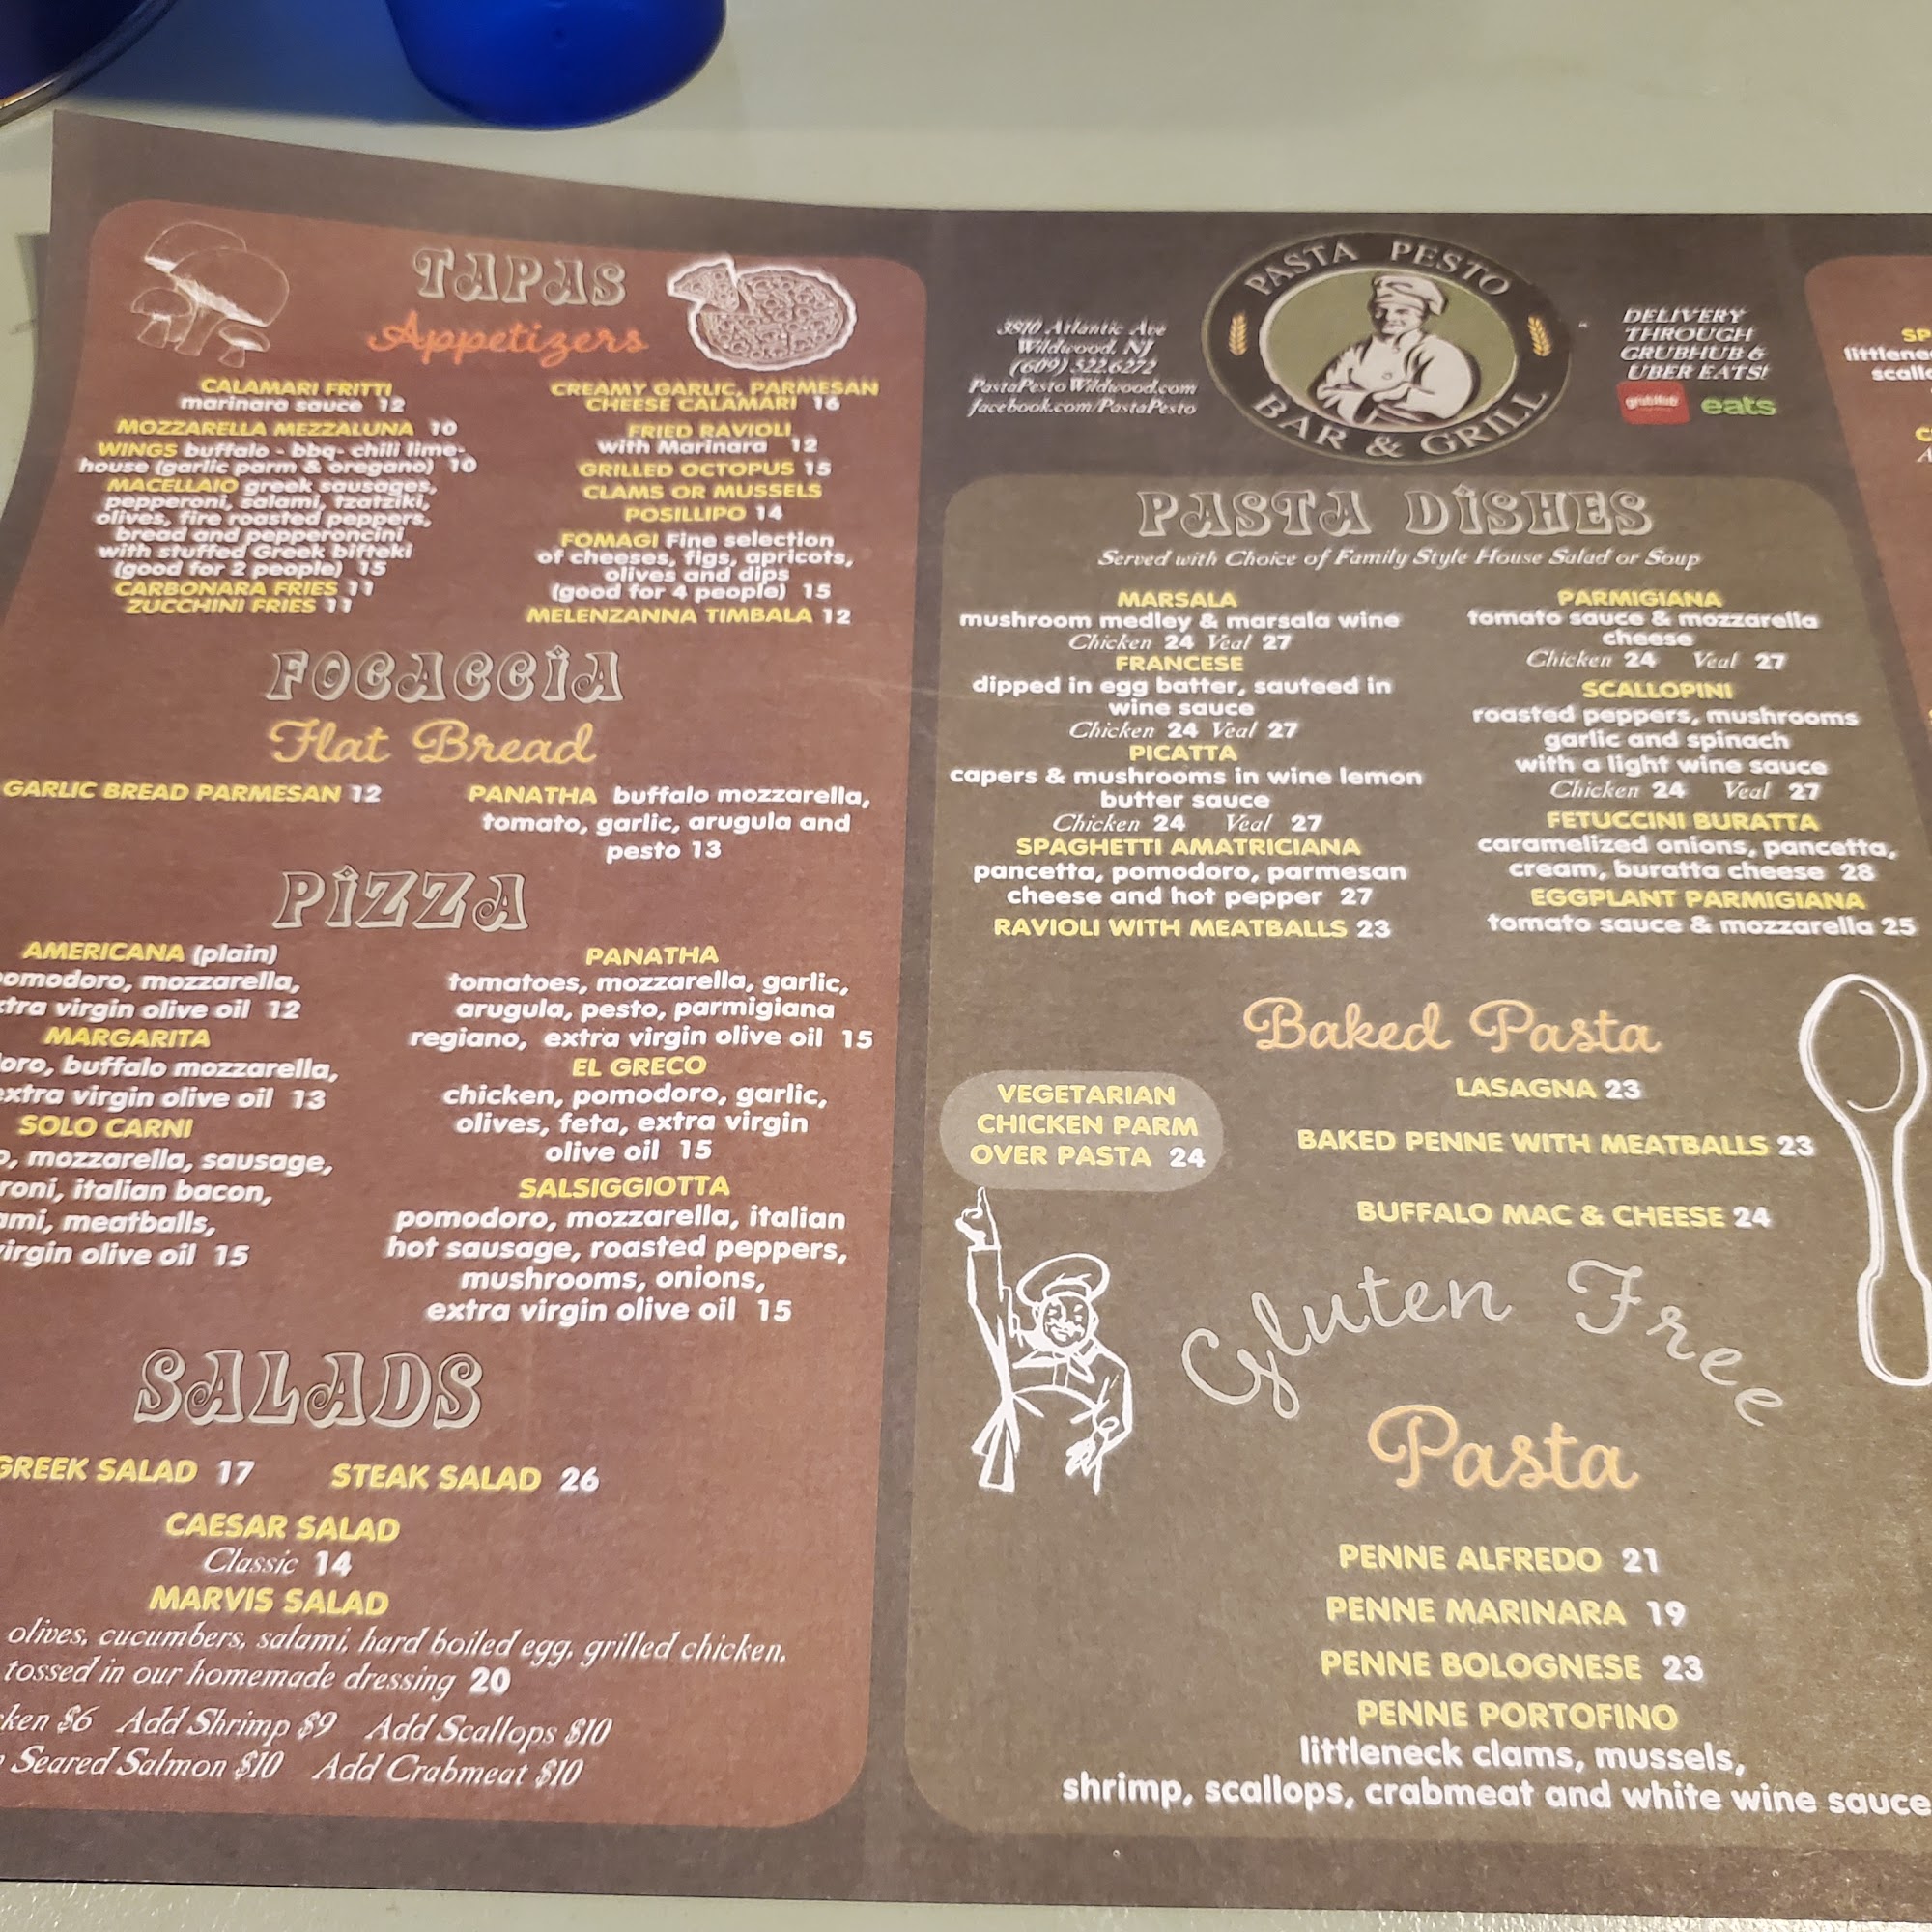 TAPAS
Appetizers
CALAMARI FRITTI
marinara sauce 12
MOZZARELLA MEZZALUNA 10
WINGS buffalo - bbq- chili lime-
house (garlic parm & oregano) 10
MACELLAIO greek sausages,
pepperoni, salami, tzatziki,
olives, fire roasted peppers,
bread and pepperoncini
with stuffed Greek bifteki
(good for 2 people) 15
CARBONARA FRIES 11
ZUCCHINI FRIES 11
CREAMY GARLIC, PARMESAN
CHEESE CALAMARI 16
FRIED RAVIOLI
with Marinara 12
GRILLED OCTOPUS 15
CLAMS OR MUSSELS
POSILLIPO 14
FOMAGI Fine selection
of cheeses, figs, apricots,
olives and dips
(good for 4 people) 15
MELENZANNA TIMBALA 12
FOCACCIA
Flat Bread
GARLIC BREAD PARMESAN 12
PANATHA buffalo mozzarella,
tomato, garlic, arugula and
pesto 13
PIZZA
AMERICANA (plain)
omodoro, mozzarella,
tra virgin olive oil 12
MARGARITA
oro, buffalo mozzarella,
extra virgin olive oil 13
SOLO CARNI
o, mozzarella, sausage,
roni, italian bacon,
ami, meatballs,
virgin olive oil 15
PANATHA
tomatoes, mozzarella, garlic,
arugula, pesto, parmigiana
regiano, extra virgin olive oil 15
EL GRECO
chicken, pomodoro, garlic,
olives, feta, extra virgin
olive oil 15
SALSIGGIOTTA
pomodoro, mozzarella, italian
hot sausage, roasted peppers,
mushrooms, onions,
extra virgin olive oil 15
SALADS
GREEK SALAD 17 STEAK SALAD 26
CAESAR SALAD
Classic 14
MARVIS SALAD
olives, cucumbers, salami, hard boiled egg, grilled chicken,
tossed in our homemade dressing 20
ken $6 Add Shrimp $9 Add Scallops $10
Seared Salmon $10 Add Crabmeat $10
3810 Atlantic Ave
Wildwood, NJ
(609) 522.6272
PastaPestoWildwood.com
facebook.com/PastaPesto
PASTA PESTO
BAR & GRILL
DELIVERY
THROUGH
GRUBHUB &
UBER EATS!
grubhub
eats
PASTA DISHES
Served with Choice of Family Style House Salad or Soup
MARSALA
mushroom medley & marsala wine
Chicken 24 Veal 27
FRANCESE
dipped in egg batter, sauteed in
wine sauce
Chicken 24 Veal 27
PICATTA
capers & mushrooms in wine lemon
butter sauce
Chicken 24 Veal 27
SPAGHETTI AMATRICIANA
pancetta, pomodoro, parmesan
cheese and hot pepper 27
RAVIOLI WITH MEATBALLS 23
PARMIGIANA
tomato sauce & mozzarella
cheese
Chicken 24 Veal 27
SCALLOPINI
roasted peppers, mushrooms
garlic and spinach
with a light wine sauce
Chicken 24 Veal 27
FETUCCINI BURATTA
caramelized onions, pancetta,
cream, buratta cheese 28
EGGPLANT PARMIGIANA
tomato sauce & mozzarella 25
Baked Pasta
VEGETARIAN
CHICKEN PARM
OVER PASTA 24
LASAGNA 23
BAKED PENNE WITH MEATBALLS 23
BUFFALO MAC & CHEESE 24
Gluten Free
Pasta
PENNE ALFREDO 21
PENNE MARINARA 19
PENNE BOLOGNESE 23
PENNE PORTOFINO
littleneck clams, mussels,
shrimp, scallops, crabmeat and white wine sauce
SP
littlene
scall